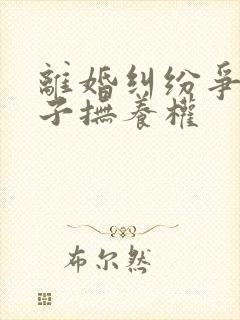 離婚纠纷爭
子撫養權
布尔然